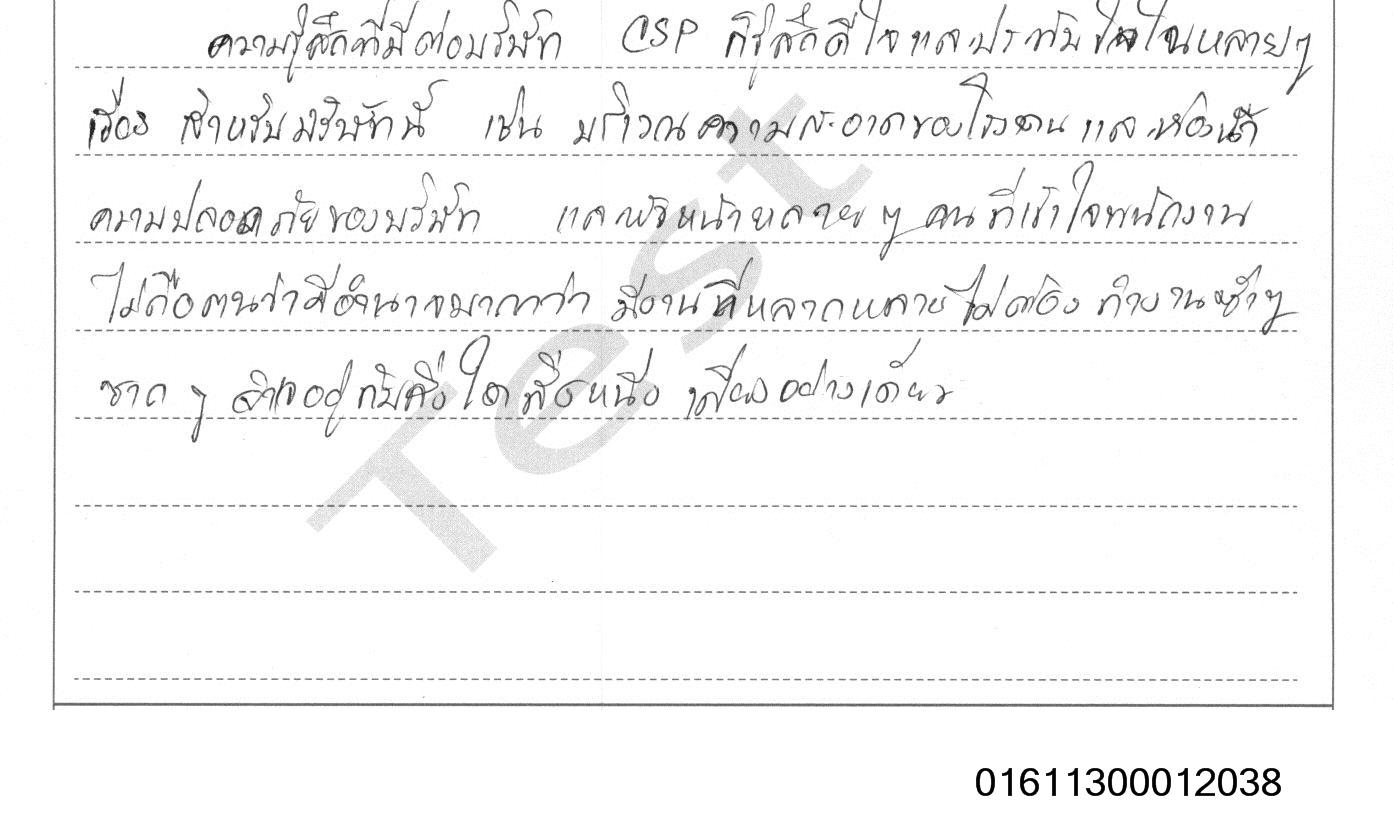 ความรู้สึกที่มีต่อบริษัท CSP ก็รู้สึกดีใจและประทับใจในหลายๆ
เรื่อง สำหรับบริษัทนี้ เช่น บริเวณความสะอาดของโรงงาน และห้องน้ำ
ความปลอดภัยของบริษัท และหัวหน้าหลายๆ คนที่เข้าใจพนักงาน
ไม่ถือตนว่ามีอำนาจมากกว่า มีงานที่หลากหลายไม่ต้อง ทำงานซ้ำๆ
ซากๆ จำเจอยู่กับสิ่งใดสิ่งหนึ่ง เพียงอย่างเดียว
Test
01611300012038